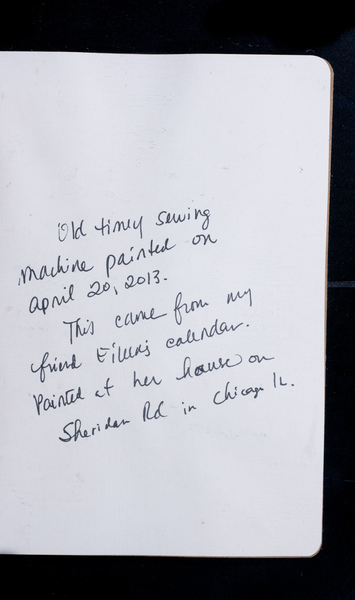 Old timey sewing
machine painted on
April 20, 2013.
This came from my
friend Eileens calendar.
Painted at her house on
Sheridan Rd in Chicago IL.